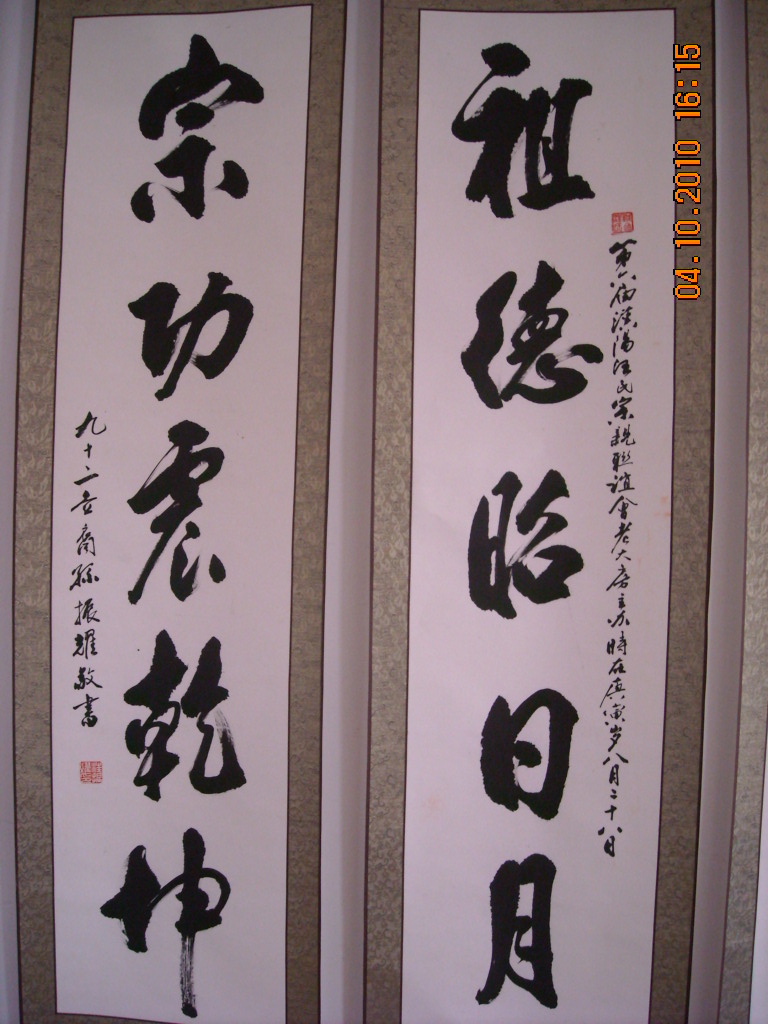 04.10.2010 16:15
第六届 汪氏宗親聯誼會老大房主办時在庚寅岁八月二十八日
祖德昭日月
宗功震乾坤
九十二 裔孫振耀敬書